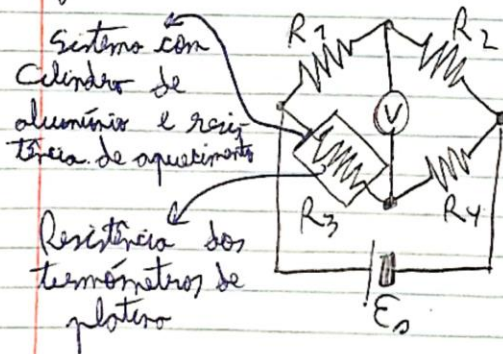 Sistema com
Cilindro de
alumínio e resis-
tência de aquecimento
R1
R2
V
R3
R4
Resistência dos
termómetros de
platina
Es